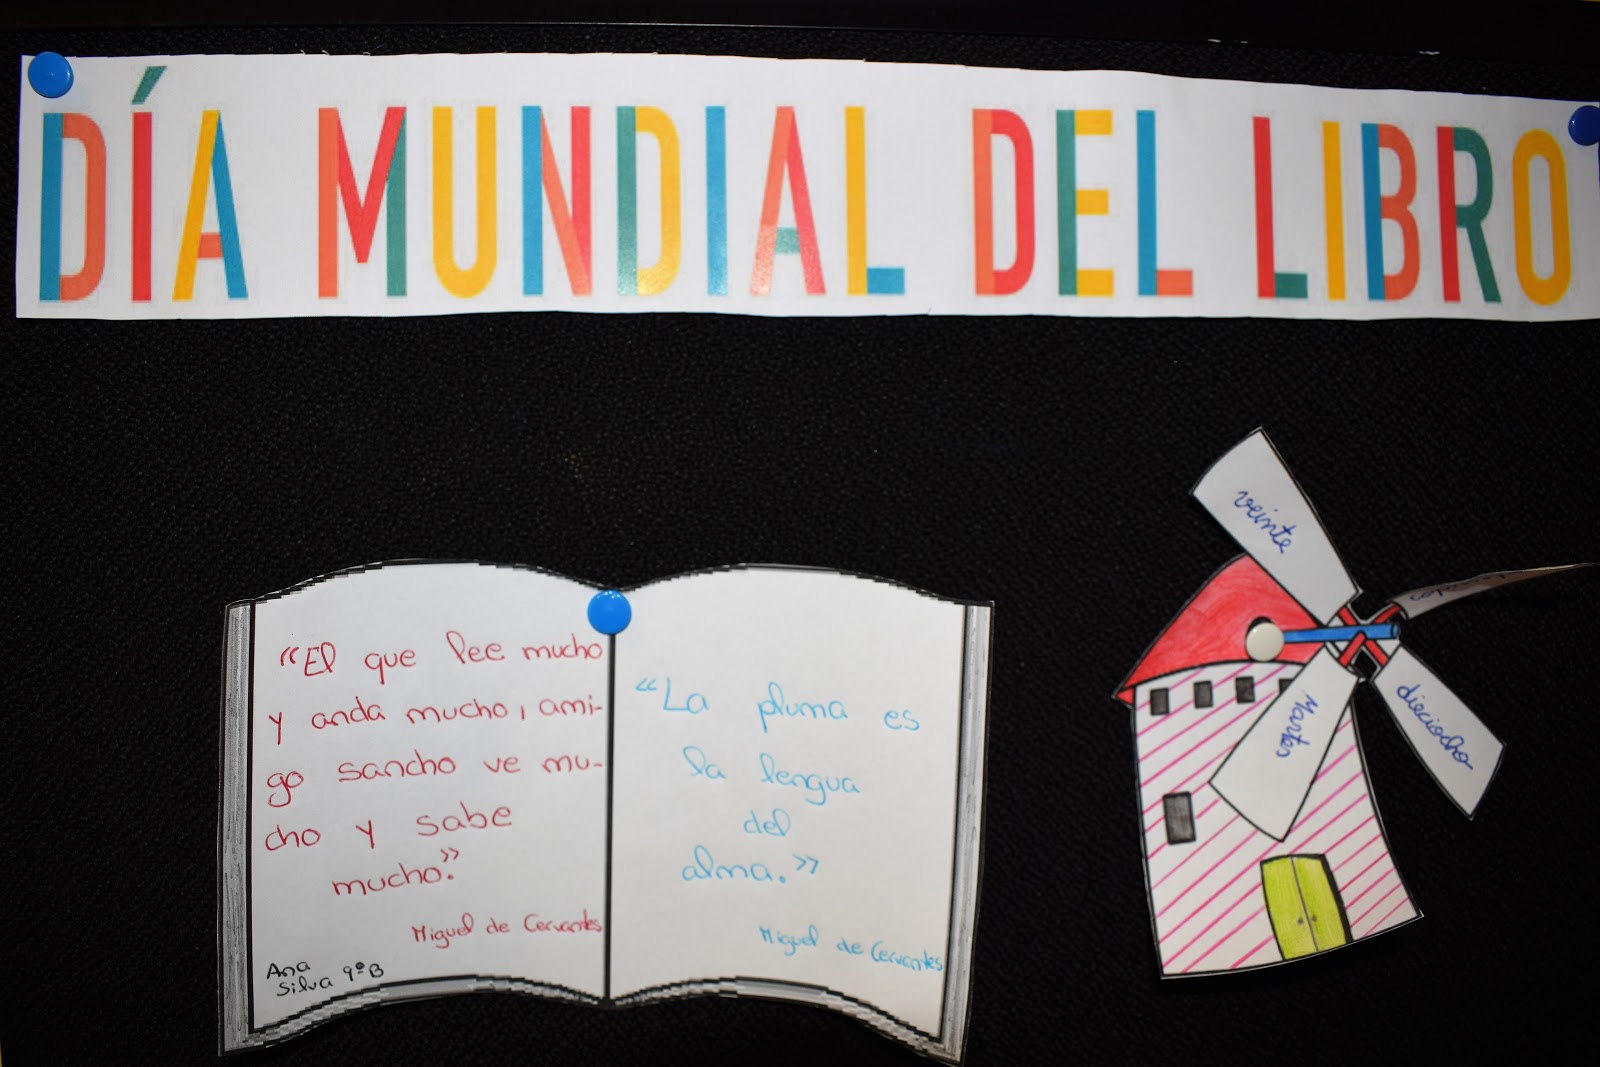 DÍA MUNDIAL DEL LIBRO
"El que lee mucho
y anda mucho, ami-
go sancho ve mu-
cho y sabe
mucho."
Miguel de Cervantes
Ana
Silva 9ºB
"La pluma es
la lengua
del
alma."
Miguel de Cervantes
veinte
dieciocho
Martes